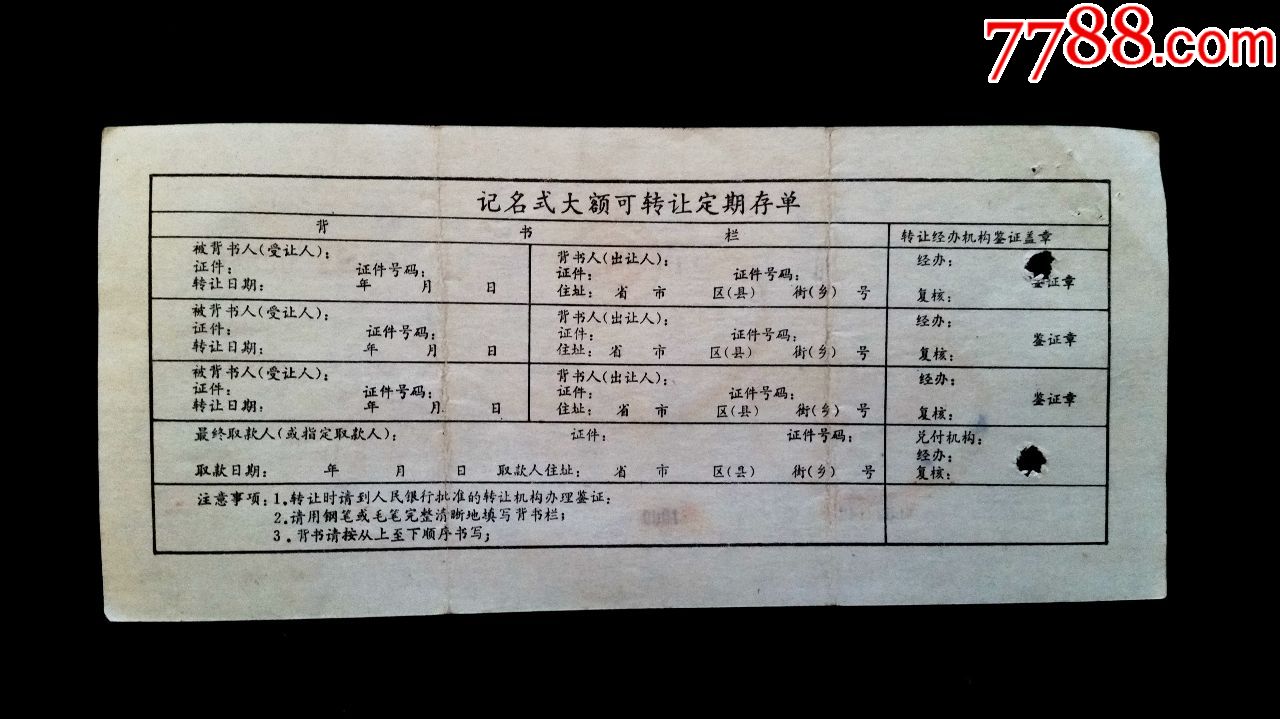 7788.com
记名式大额可转让定期存单
背 书 栏 转让经办机构鉴证盖章
被背书人(受让人): 背书人(出让人): 经办:
证件: 证件号码: 证件: 证件号码: 鉴证章
转让日期: 年 月 日 住址: 省 市 区(县) 街(乡) 号 复核:
被背书人(受让人): 背书人(出让人): 经办:
证件: 证件号码: 证件: 证件号码: 鉴证章
转让日期: 年 月 日 住址: 省 市 区(县) 街(乡) 号 复核:
被背书人(受让人): 背书人(出让人): 经办:
证件: 证件号码: 证件: 证件号码: 鉴证章
转让日期: 年 月 日 住址: 省 市 区(县) 街(乡) 号 复核:
最终取款人(或指定取款人): 证件: 证件号码: 兑付机构:
经办:
取款日期: 年 月 日 取款人住址: 省 市 区(县) 街(乡) 号 复核:
注意事项:1.转让时请到人民银行批准的转让机构办理鉴证;
2.请用钢笔或毛笔完整清晰地填写背书栏;
3.背书请按从上至下顺序书写;